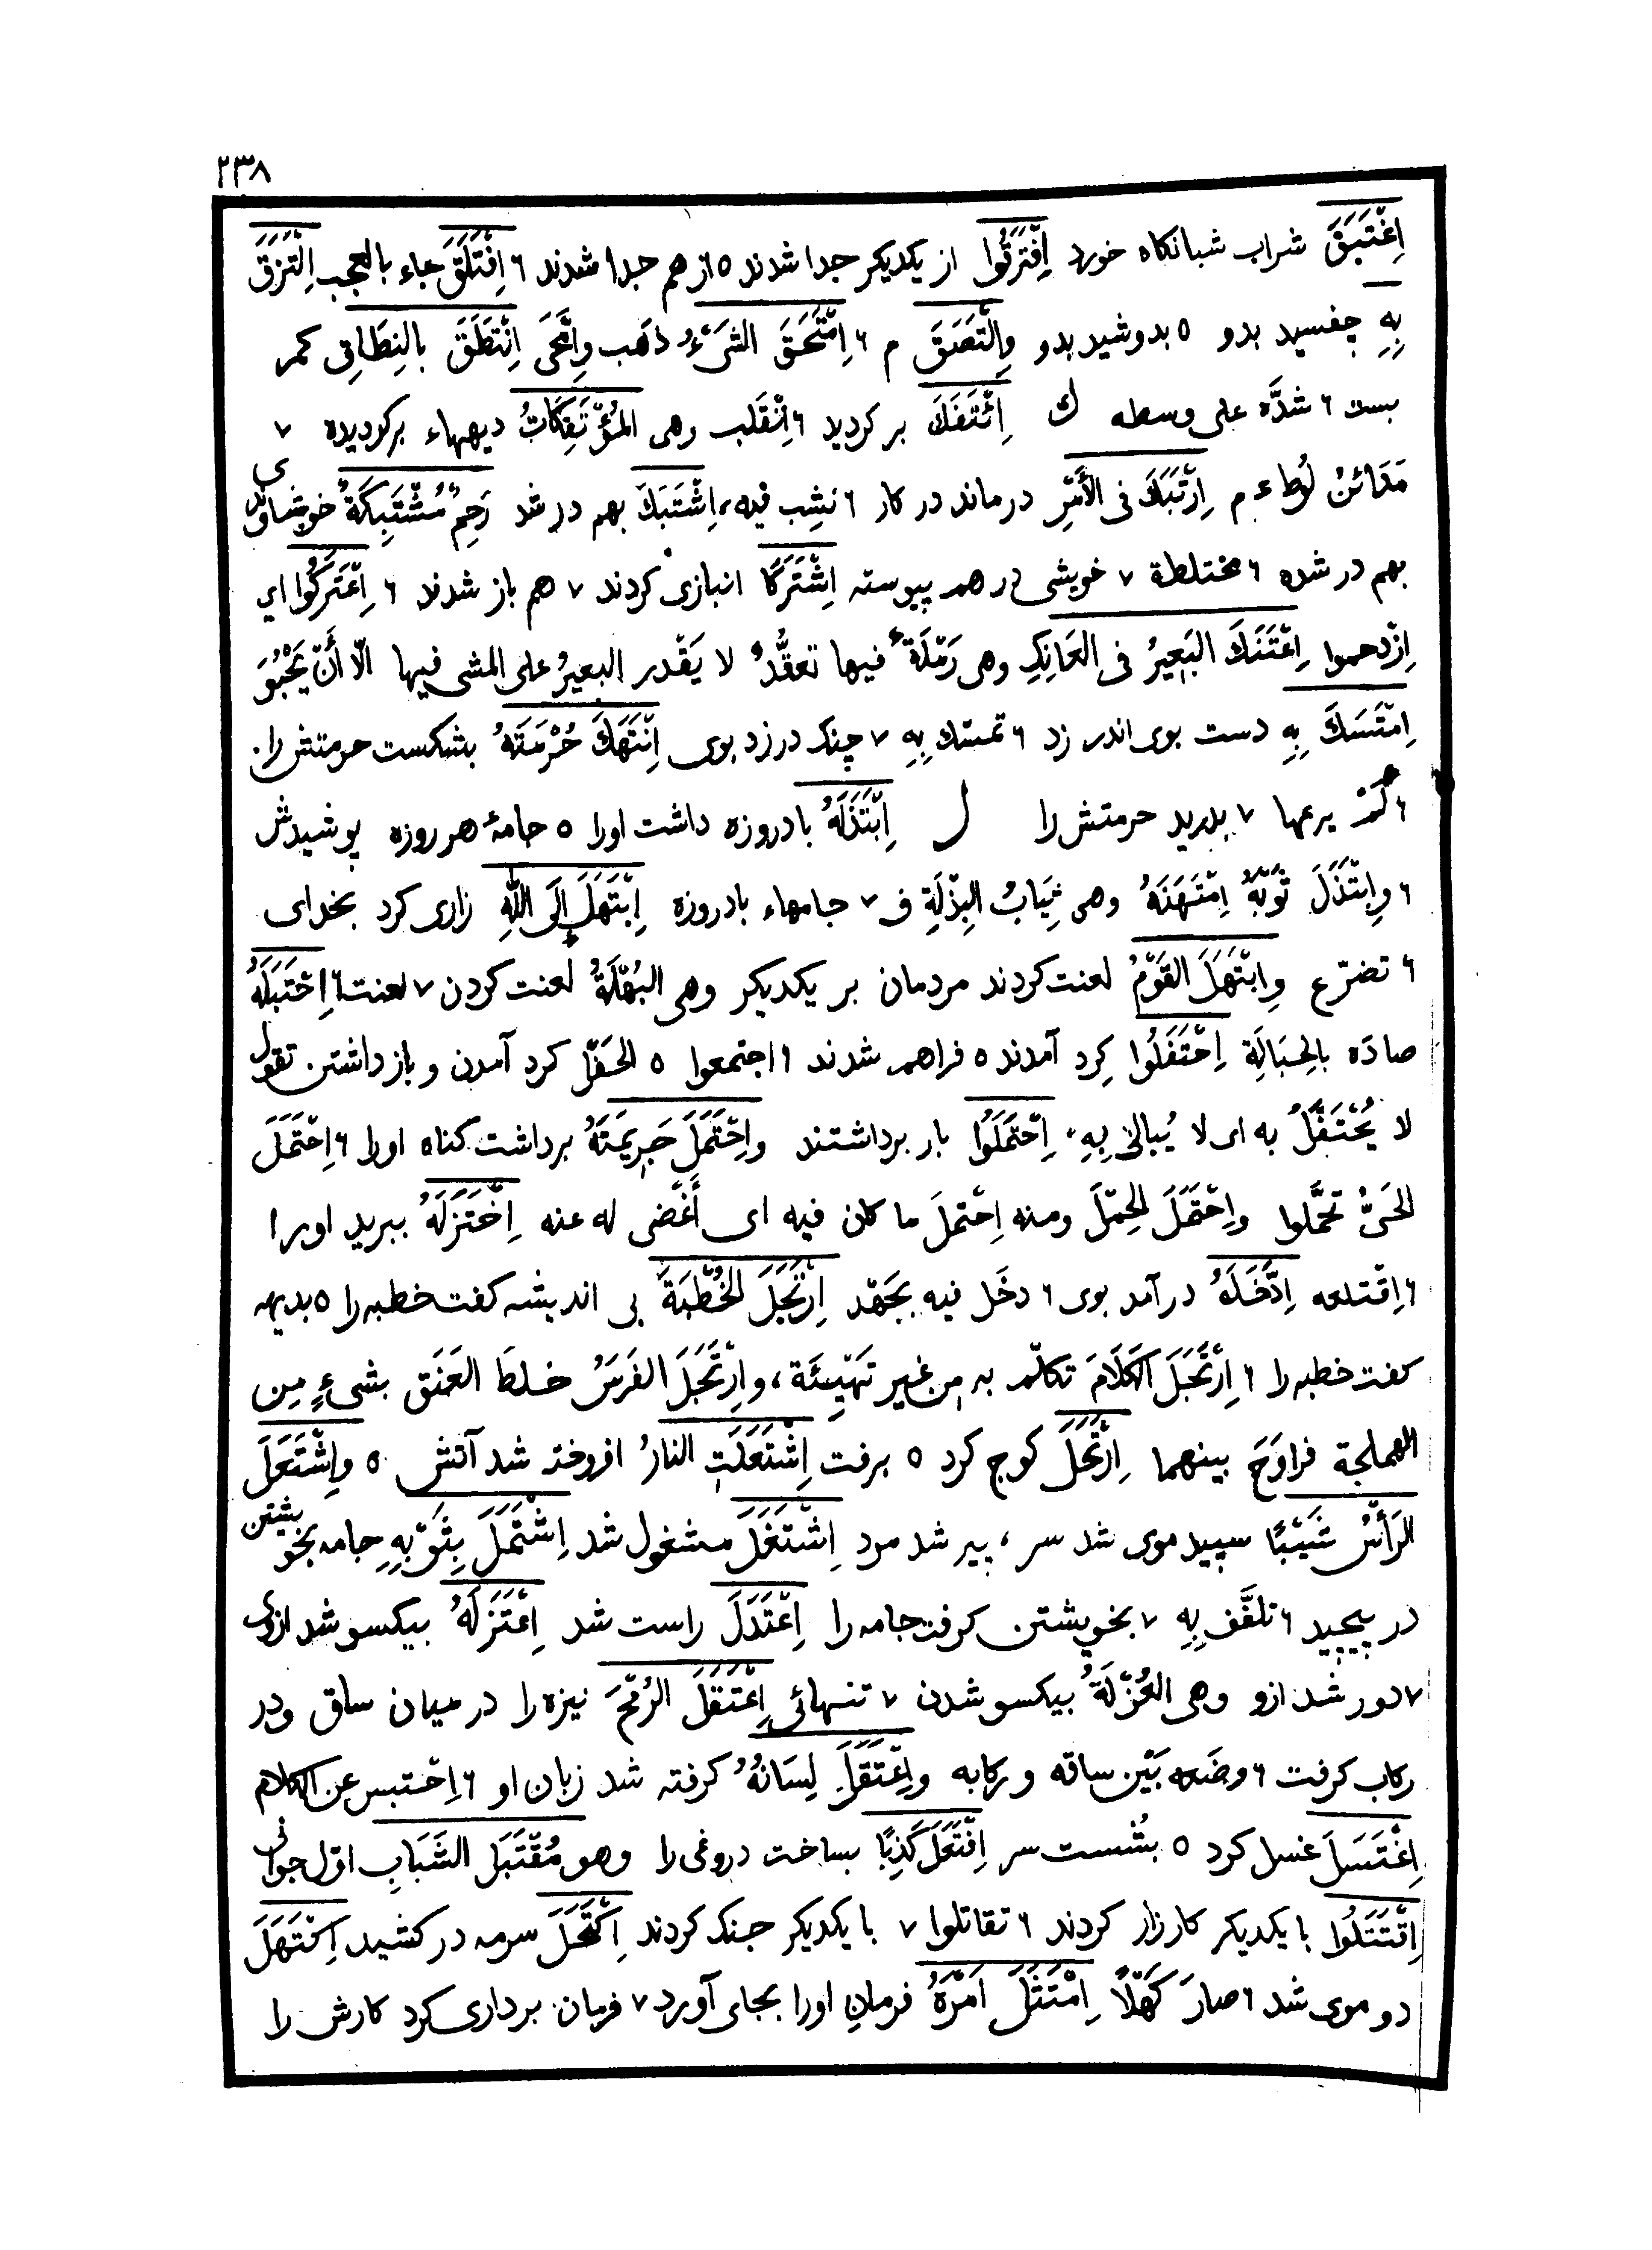 ٢٣٨
اِغْتَبَقَ شراب شبانکاه خورد اِفْتَرَقُوا از یکدیکر جدا شدند ٥ از هم جدا شدند ٦ اِفْتَلَقَ جاء بالعجب اِلْتَزَقَ
بِهِ چفسید بدو ٥ بدوشید بدو وِالْتَصَقَ م ٦ اِمْتَحَقَ الشَیْءُ ذهَب وِاتَّمحَی اِنْتَطَقَ بالنِطَاقِ کمر
بست ٦ شدَّه علی وسطه ك اِئْتَفَكَ بر کردید ٦ اِنْقَلَب وهی المُؤْتَفِکَاتُ دیههاء برکردیده ٧
مَدَائنُ لُوط ع م اِرْتَبَكَ فی الأَمْرِ درماند در کار ٦ نَشِب فیه، اِشْتَبَكَ بهم در شد رَحِمٌ مُشْتَبِکَةٌ خویشاوندی
بهم در شده ٦ مختلطة ٧ خویشی در هم پیوسته اِشْتَرَکَا انبازی کردند ٧ هم باز شدند ٦ اِعْتَرَکُوا ای
اِزْدحموا اِعْتَنَكَ البَعِیرُ فی العَانِكِ وهی رَمْلَةٌ فیها تعقُّدٌ لا یَقْدر البعیرُ علی المشی فیها الّا أَنْ یَحْبُوَ
اِمْتَسَكَ بِهِ دست بوی اندر زد ٦ تمسّك بِهِ ٧ چنک در زد بوی اِنْتَهَكَ حُرْمَتَهُ بشکست حرمتش را.
٦ لَمْ یرعها ٧ بدرید حرمتش را ل اِبْتَذَلَهُ بادروزه داشت اورا ٥ جامهٔ هر روزه پوشیدش
٦ وِابْتَذَلَ ثَوْبَهُ اِمْتَهَنَهُ وهی ثِیَابُ البِذْلَةِ ف ٧ جامهاء بادروزه اِبْتَهَلَ إِلَی اللهِ زاری کرد بخدای
٦ تضرّع وِابْتَهَلَ القَوْمُ لعنت کردند مردمان بر یکدیکر وهی البُهْلَةُ لعنت کردن ٧ لعنت ٦ اِحْتَبَلَهُ
صادَه بالحِبَالَةِ اِحْتَفَلُوا کِرد آمدند ٥ فراهم شدند ٦ اجتمعوا ٥ الحَفْلُ کرد آمدن و باز داشتن تقول
لا یُحْتَفَلُ به ای لا یُبالیٰ بِهِ، اِحْتَمَلُوا بار برداشتند وِاحْتَمَلَ جَرِیمَتَهُ برداشت کناه اورا ٦ اِحْتَمَلَ
الحَیُّ تحمَّلوا وِاحْتَمَلَ الحِمْلَ ومنه اِحْتملَ ما کان فیه ای أَغْضی له عنه اِخْتَزَلَهُ ببرید اورا
٦ اِقْتلعه اِدَّخَلَهُ در آمد بوی ٦ دخَل فیه بجَهْد اِرْتَجَلَ الخُطْبَةَ بی اندیشه کفت خطبه را ٥ بدیهه
کفت خطبه را ٦ اِرْتَجَلَ الکَلَامَ تکلّم به من غیر تَهْیِئَة، وِارْتَجَلَ الفَرَسُ خلطَ العَنَق بشیءٍ مِن
الهملجة فراوَحَ بینهما اِرْتَحَلَ کوچ کرد ٥ برفت اِشْتَعَلَتِ النارُ افروخته شد آتش ٥ وِاشْتَعَلَ
الرَأْسُ شَیْبًا سپید موی شد سر، پیر شد مرد اِشْتَغَلَ مشغول شد اِشْتَمَلَ بِثَوْبِهِ جامه بخویشتن
در پیچید ٦ تلفَّف بِهِ ٧ بخویشتن کرفت جامه را اِعْتَدَلَ راست شد اِعْتَزَلَهُ بیکسو شد ازوی
٧ دور شد ازو وهی العُزْلَةُ بیکسو شدن ٧ تنهائی اِعْتَقَلَ الرُمْحَ نیزه را در میان ساق ودر
رکاب کرفت ٦ وضَعه بَیْن ساقه و رکابه وِاعْتَقَلَ لِسَانُهُ کرفته شد زبان او ٦ اِحْتبس عن الکلام
اِغْتَسَلَ غسل کرد ٥ بشُست سر اِفْتَعَلَ کَذِبًا بساخت دروغی را وهو مُقْتَبَل الشَبَابِ اوّل جوانی
اِقْتَتَلُوا با یکدیکر کارزار کردند ٦ تقاتلوا ٧ با یکدیکر جنک کردند اِکْتَحَلَ سرمه در کشید اِکْتَهَلَ
دو موی شد ٦ صارَ کَهْلًا اِمْتَثَلَ اَمْرَهُ فرمانِ اورا بجای آورد ٧ فرمان برداری کرد کارش را